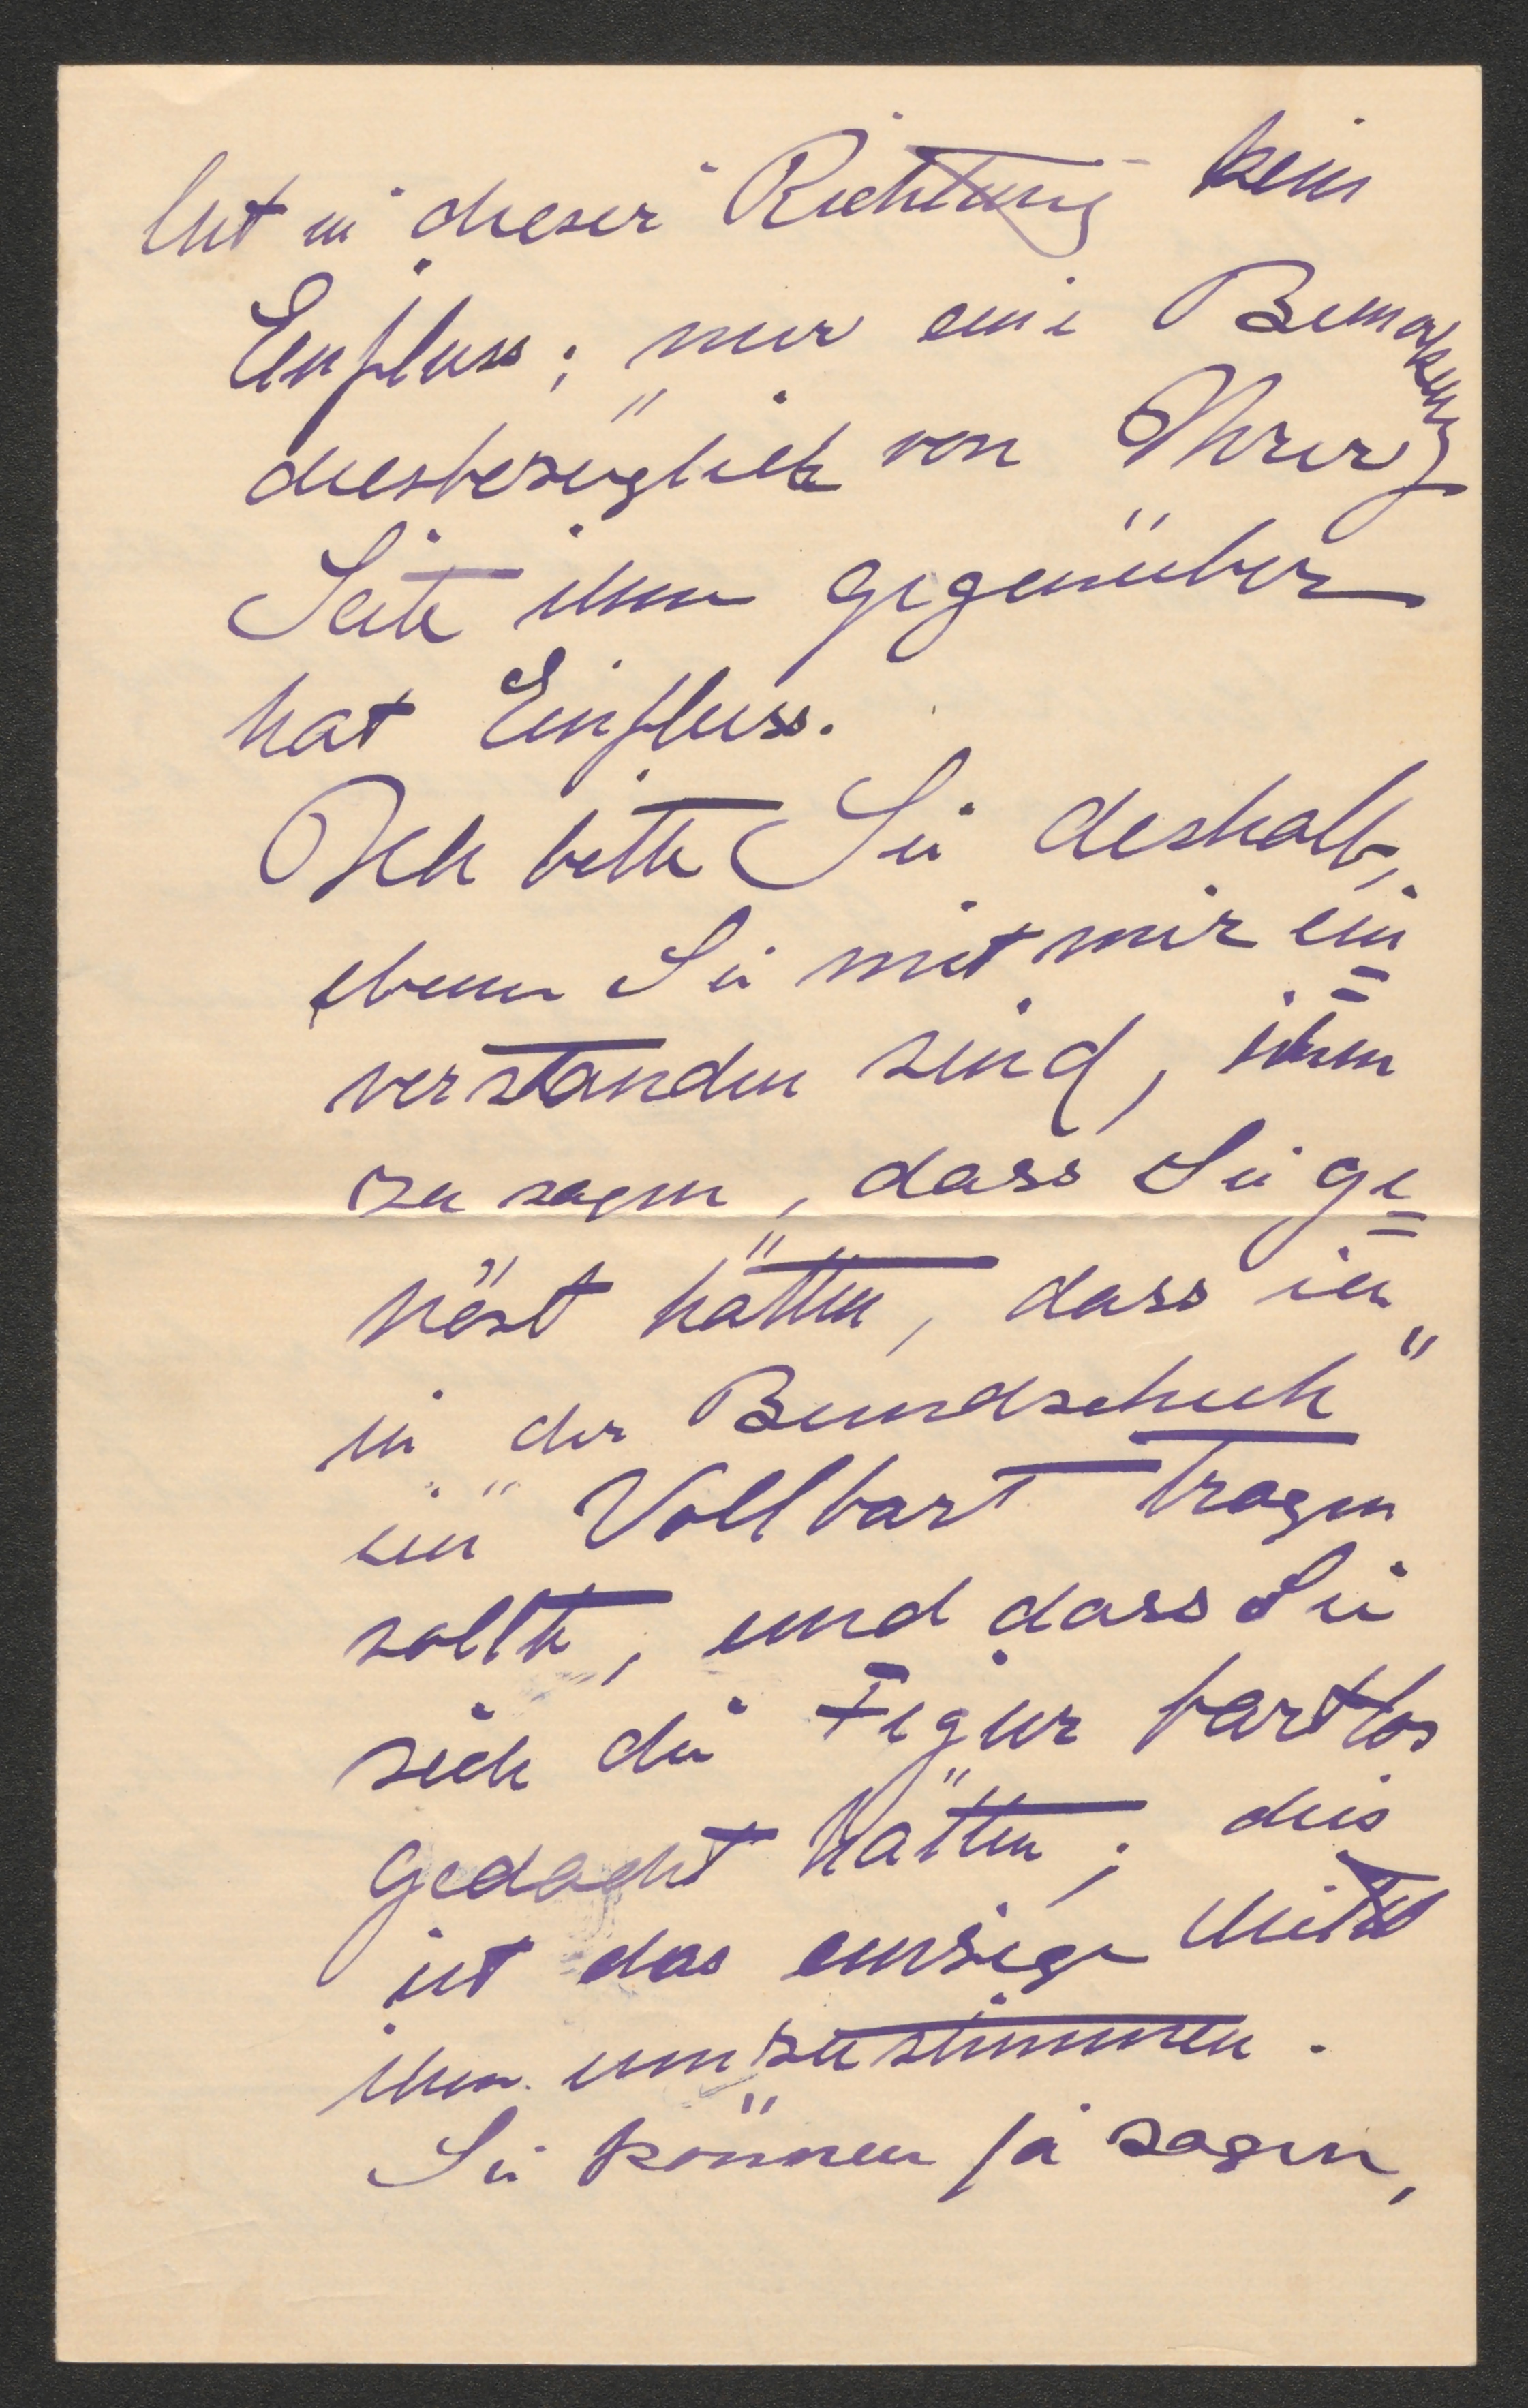 hat in dieser Richtung kein
Einfluss; nur eine Bemerkung
diesbezüglich von Ihrer
Seite ihm gegenüber
hat Einfluss.
Ich bitte Sie deshalb,
wenn Sie mit mir ein=
verstanden sind, ihm
zu sagen, dass Sie ge=
hört hätten, dass ich
in „der Bundschuh“
ein Vollbart tragen
sollte, und dass Sie
sich die Figur bartlos
gedacht hätten; dies
ist das einzige Mittel
ihn umzustimmen.
Sie können ja sagen,